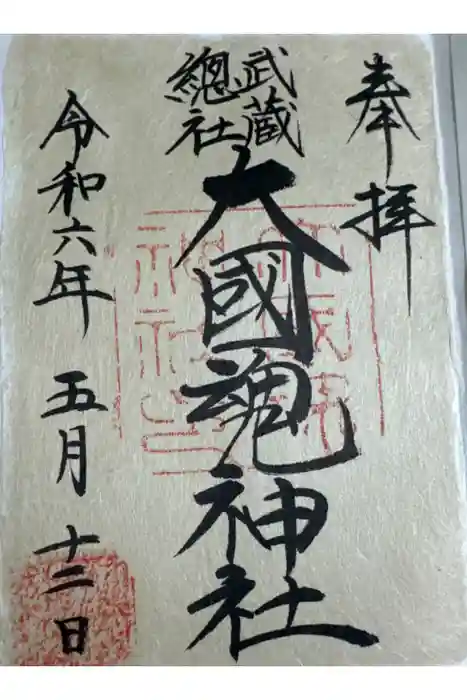 奉拝
武蔵
總社
大國魂神社
令和六年 五月 十二日